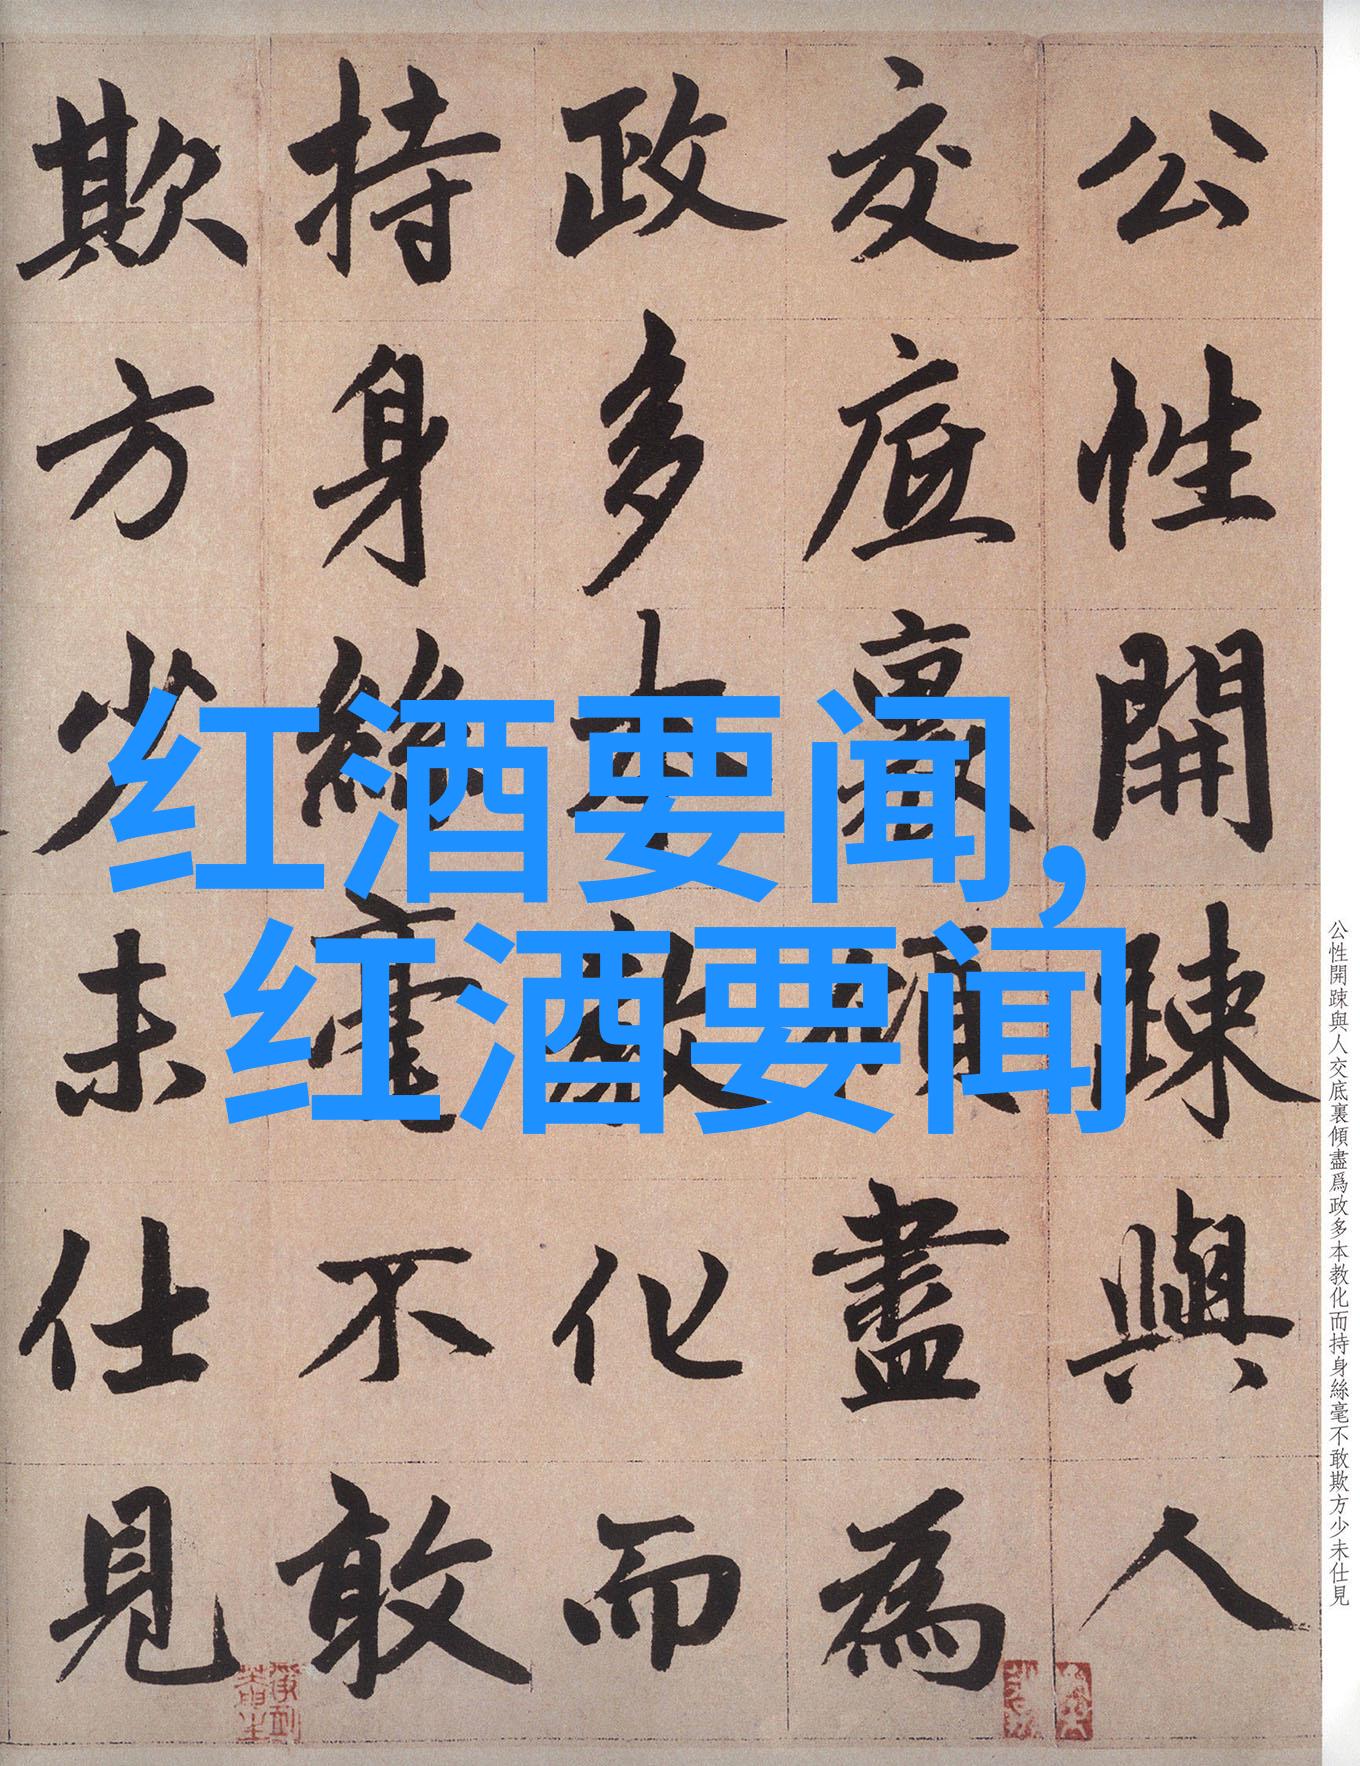 公性開踈與人
交底裏傾盡為
政多本教化而
持身絲毫不敢
欺方少未仕見
红酒要闻,
红酒要闻
公性開踈與人交底裏傾盡爲政多本教化而持身絲毫不敢欺方少未仕見